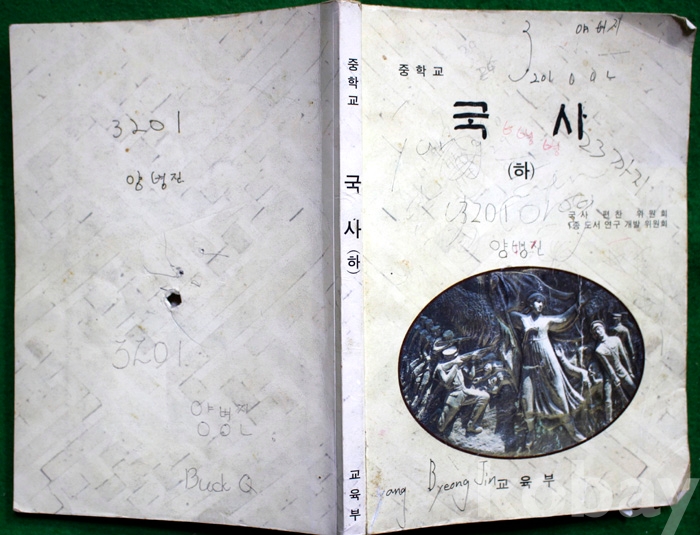 3201
양병진
3201
양병진
Buck Q
중학교
국사(하)
교육부
3
중학교
국 사
(하)
23 가지
3201
국사 편찬 위원회
1종 도서 연구 개발 위원회
양병진
yang Byeong Jin
교육부
bay